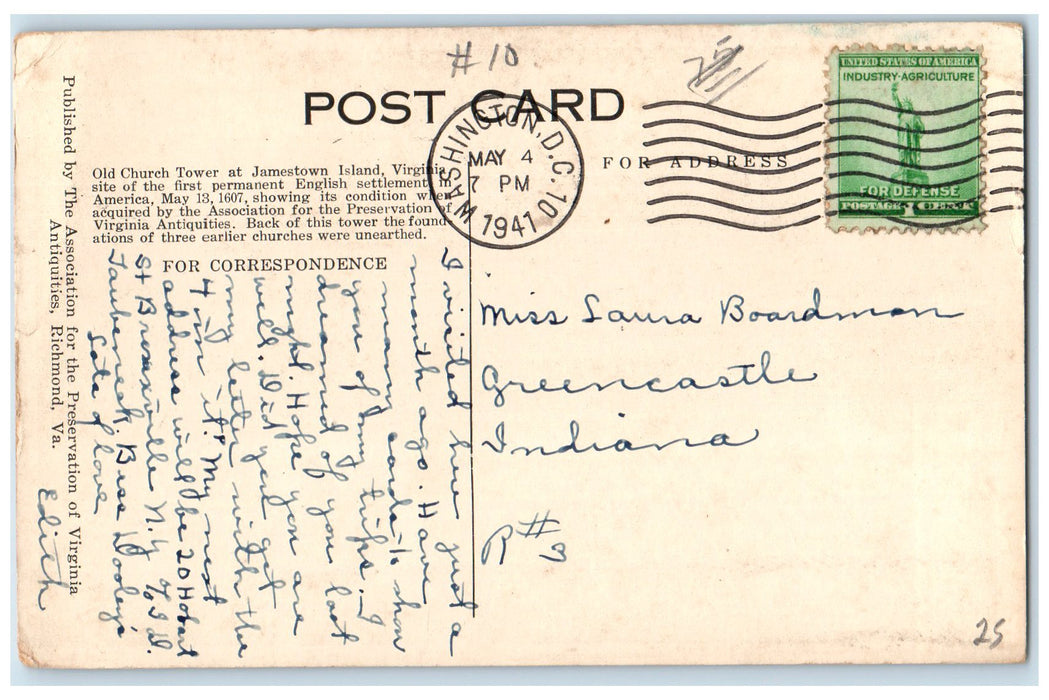 #10
25
POST CARD
WASHINGTON, D.C. 10
MAY 4
7 PM
1941
FOR ADDRESS
UNITED STATES OF AMERICA
INDUSTRY·AGRICULTURE
FOR DEFENSE
POSTAGE 1 CENT
Old Church Tower at Jamestown Island, Virginia,
site of the first permanent English settlement in
America, May 13, 1607, showing its condition when
acquired by the Association for the Preservation of
Virginia Antiquities. Back of this tower the found-
ations of three earlier churches were unearthed.
FOR CORRESPONDENCE
Published by The Association for the Preservation of Virginia
Antiquities, Richmond, Va.
I visited here just a
month ago. Have
many cards to show
you of my trips. I
dreamed of you last
night. Hope you are
well. Did you get
my letter with the
4 in it? My next
address will be 20 Hobart
St Bronxville N.Y. % I.D.
Taubeneck. Bess Dooley's
Lots of love
Edith
Miss Laura Boardman
Greencastle
Indiana
R#3
25